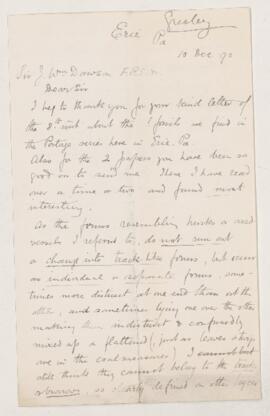 Gresley
Erie
Pa
10 Dec 90
Sir J. Wm Dawson F.R.S. &c
Dear Sir
I beg to thank you for your kind letter of
the 8th inst about the fossils we find in
the Portage series here in Erie, Pa.
Also for the 2 papers you have been so
good as to send me. These I have read
over a time or two and found most
interesting.
As the forms resembling
vessels I referred to, do not run out
or change into tracks like forms, but occur
as individual or separate forms, some-
times more distinct at one end than at the
other, and sometimes lying one over the other
making them indistinct & confusedly
mixed up & flattened (just as leaves & things
are in the coal measures) I cannot but
still think they cannot belong to the tracks
or burrows, so clearly defined in other layers